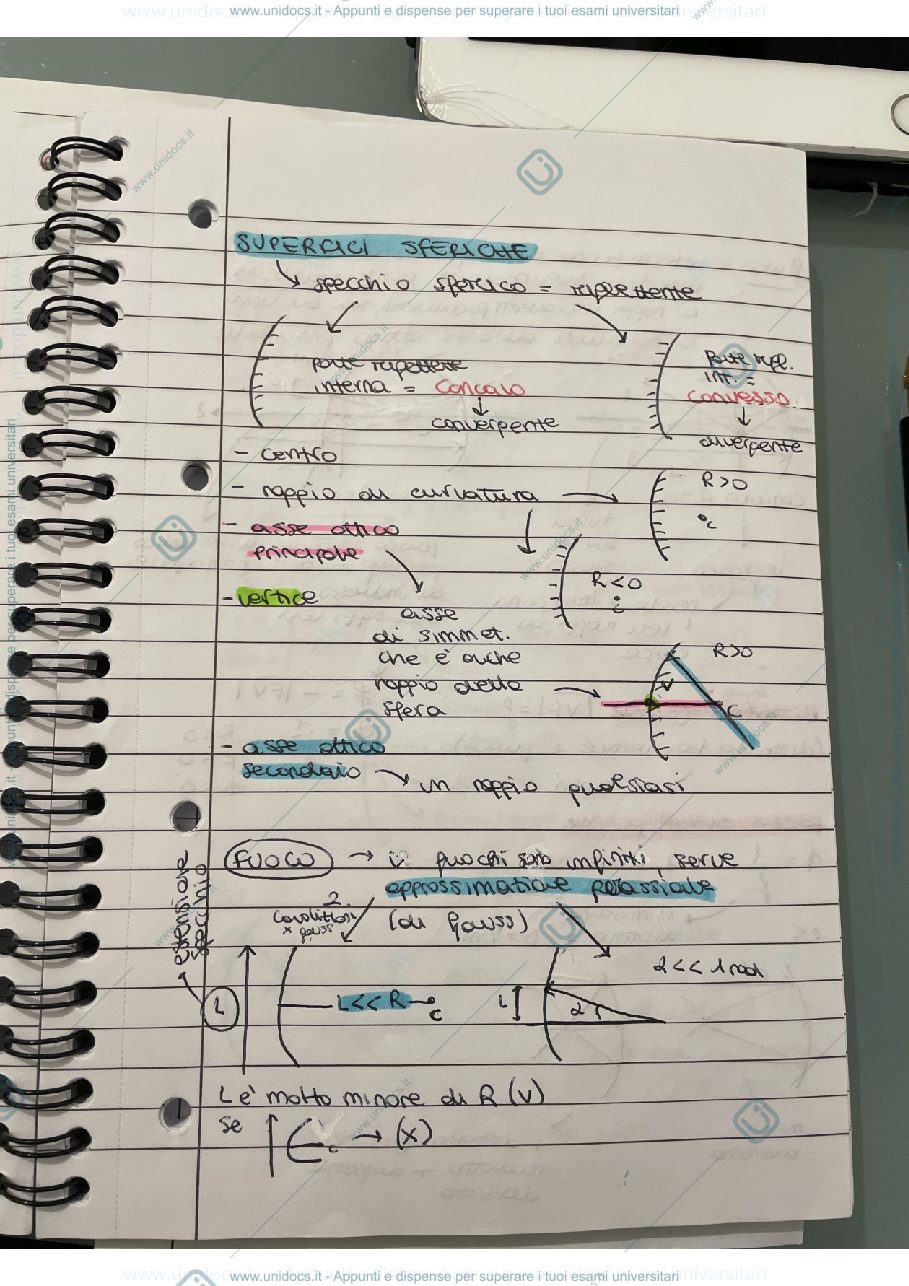 www.unidocs.it - Appunti e dispense per superare i tuoi esami universitari
SUPERFICI SFERICHE
specchio sferico = riflettente
parte riflettente
interna = concavo
convergente
parte rifl.
int. =
convesso
divergente
- centro
- raggio di curvatura
R>0
c
- asse ottico
principale
R<0
c
- vertice
asse
di simmet.
che è anche
raggio della
sfera
R>0
c
- asse ottico
secondario
un raggio qualsiasi
FUOCO → i fuochi sono infiniti, serve
approssimazione parassiale
(di Gauss)
2.
condizioni
x gauss
estensione
specchio
L
L<<R
c
L
α
α << 1 rad
L è molto minore di R (v)
Se
c
→ (x)
www.unidocs.it - Appunti e dispense per superare i tuoi esami universitari